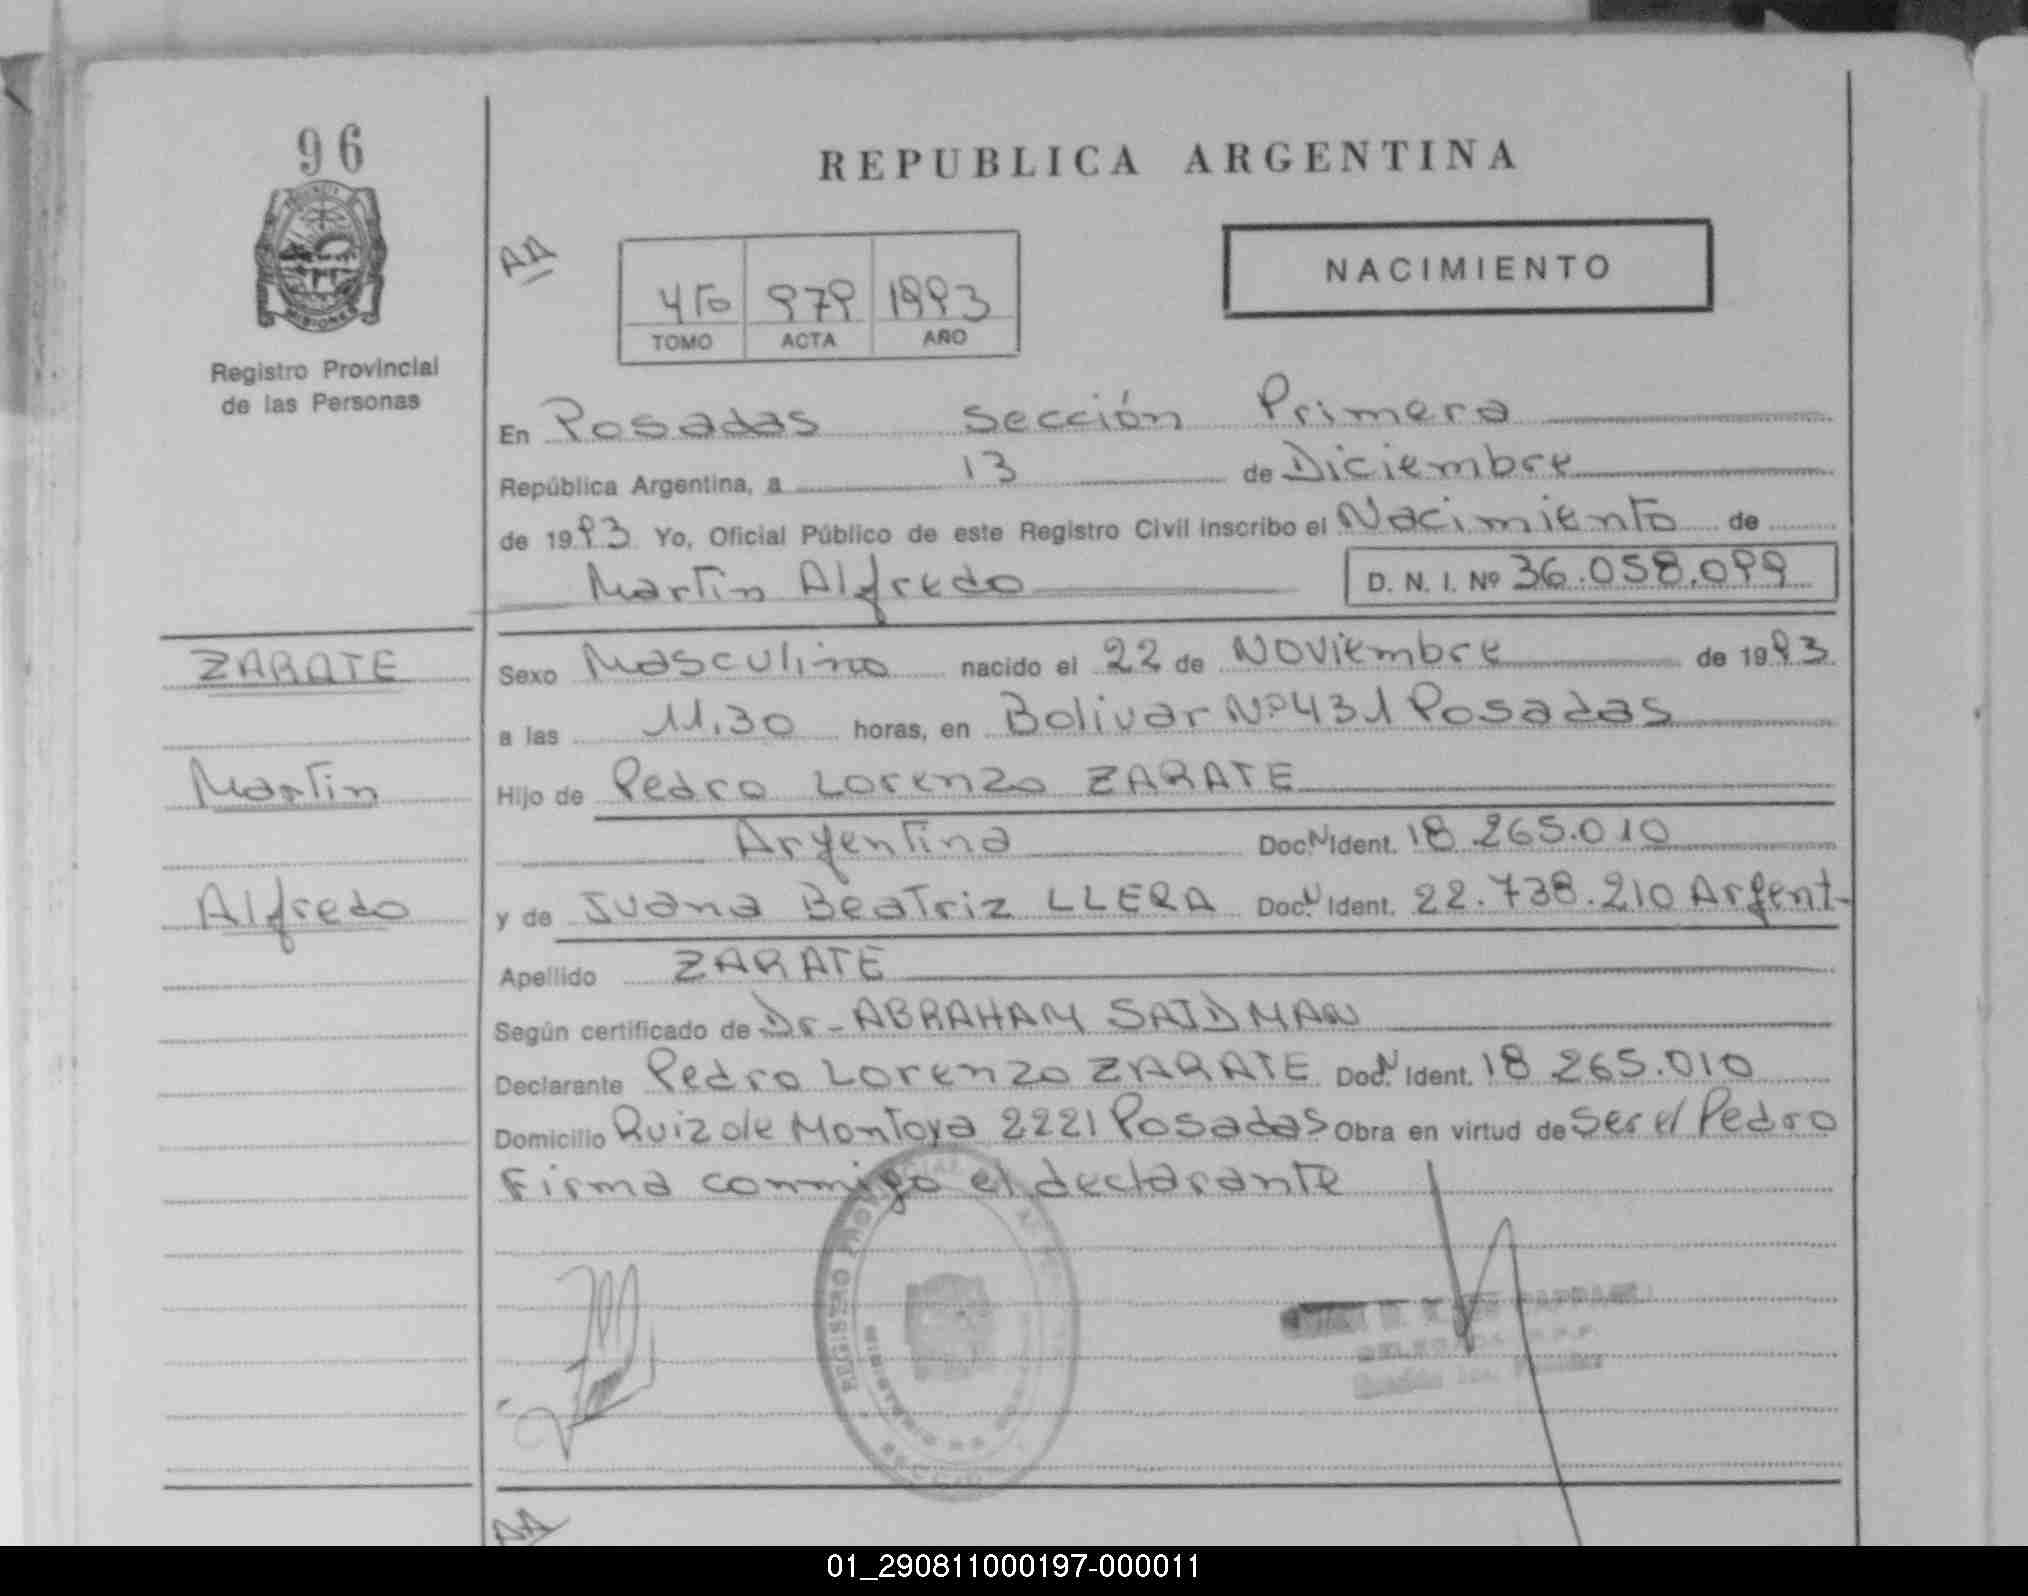 96
REPUBLICA ARGENTINA
MISIONES
AA
NACIMIENTO
4to 979 1993
TOMO ACTA AÑO
Registro Provincial
de las Personas
En Posadas Sección Primera
República Argentina, a 13 de Diciembre
de 1993 Yo, Oficial Público de este Registro Civil inscribo el Nacimiento de
Martin Alfredo D. N. I. Nº 36.058.099
ZARATE
Sexo Masculino nacido el 22 de Noviembre de 1993
a las 11.30 horas, en Bolivar Nº 431 Posadas
Martin
Hijo de Pedro Lorenzo ZARATE
Argentina Doc. N Ident. 18 265.010
Alfredo
y de Juana Beatriz LLERA Doc. N Ident. 22.738.210 Argent-
Apellido ZARATE
Según certificado de Dr- ABRAHAM SAIDMAN
Declarante Pedro Lorenzo ZARATE Doc. N Ident. 18 265.010
Domicilio Ruiz de Montoya 2221 Posadas Obra en virtud de ser el Pedro
Firma conmigo el declarante
REGISTRO
AA
01_290811000197-000011